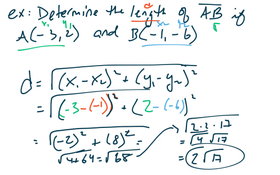 ex: Determine the length of AB if
d
x₁ y₁ x₂ y₂
A(-3, 2) and B(-1, -6)
d = √(x₁ - x₂)² + (y₁ - y₂)²
= √(-3 - (-1))² + (2 - (-6))²
= √(-2)² + (8)² =
√4+64 = √68 =
√2·2·17
= √4 √17
= 2√17